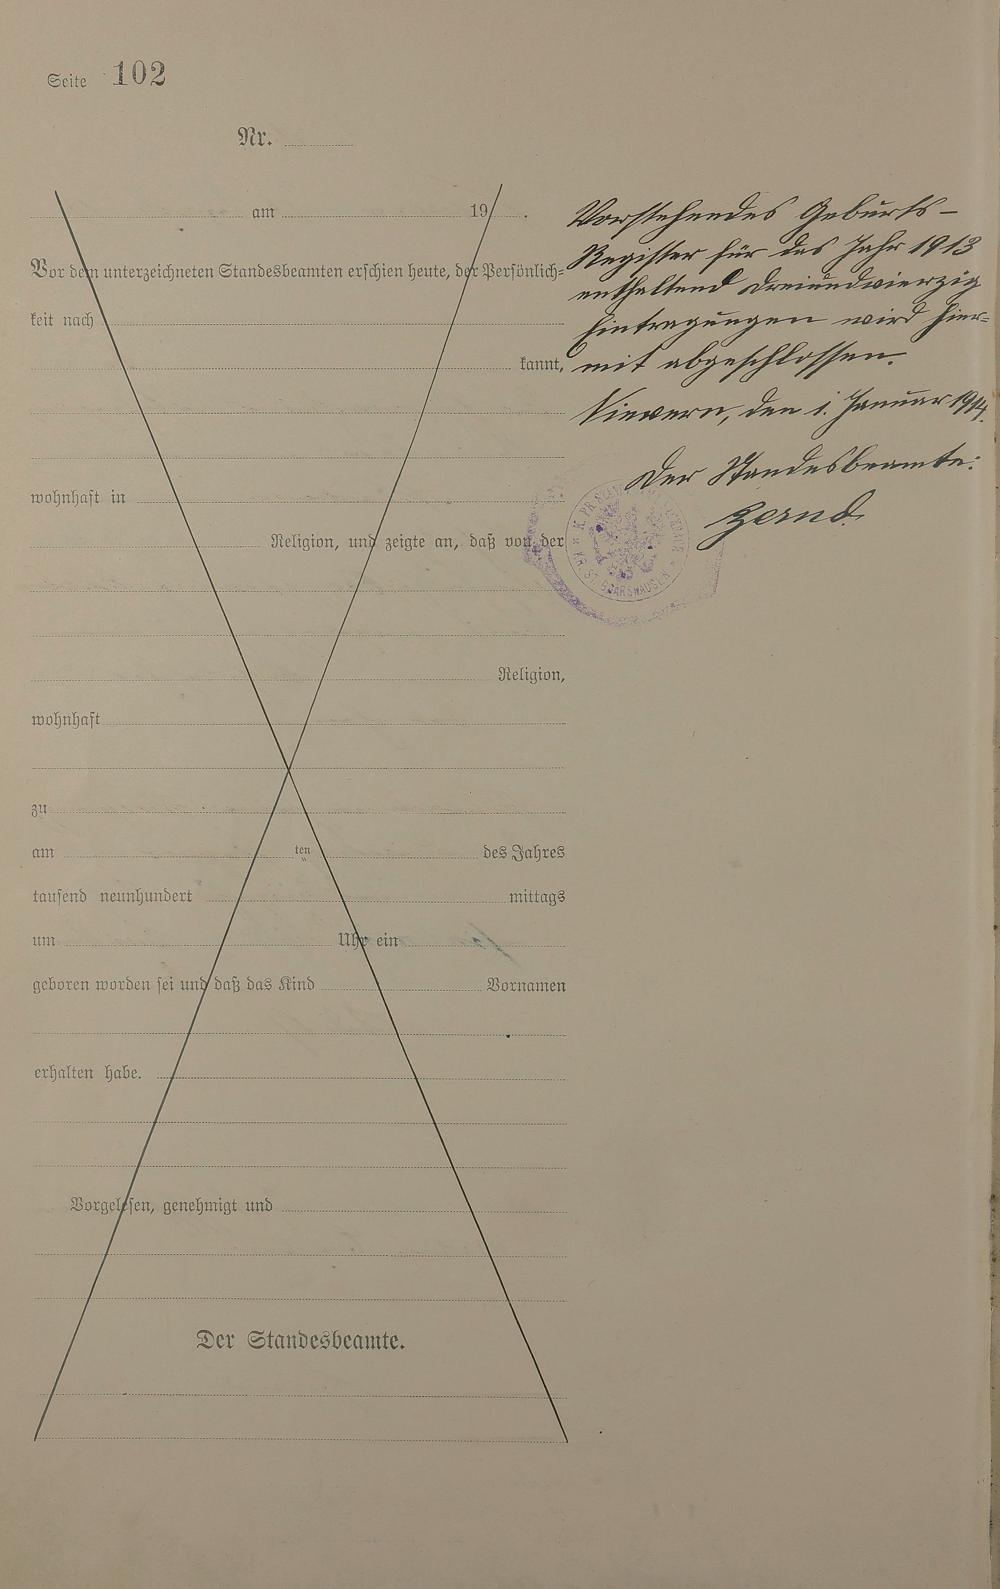 Seite 102
Nr.
am 19 .
Vor dem unterzeichneten Standesbeamten erschien heute, der Persönlich-
keit nach
kannt,
wohnhaft in
Religion, und zeigte an, daß von der
Religion,
wohnhaft
zu
am ten des Jahres
tausend neunhundert mittags
um Uhr ein
geboren worden sei und daß das Kind Vornamen
erhalten habe.
Vorgelesen, genehmigt und
Der Standesbeamte.
Vorstehendes Geburts-
Register für das Jahr 1913
enthaltend dreiundvierzig
Eintragungen wird hier-
mit abgeschlossen.
Nievern, den 1. Januar 1914.
Der Standesbeamte:
K. PR. STANDESAMT
KR. ST. GOARSHAUSEN